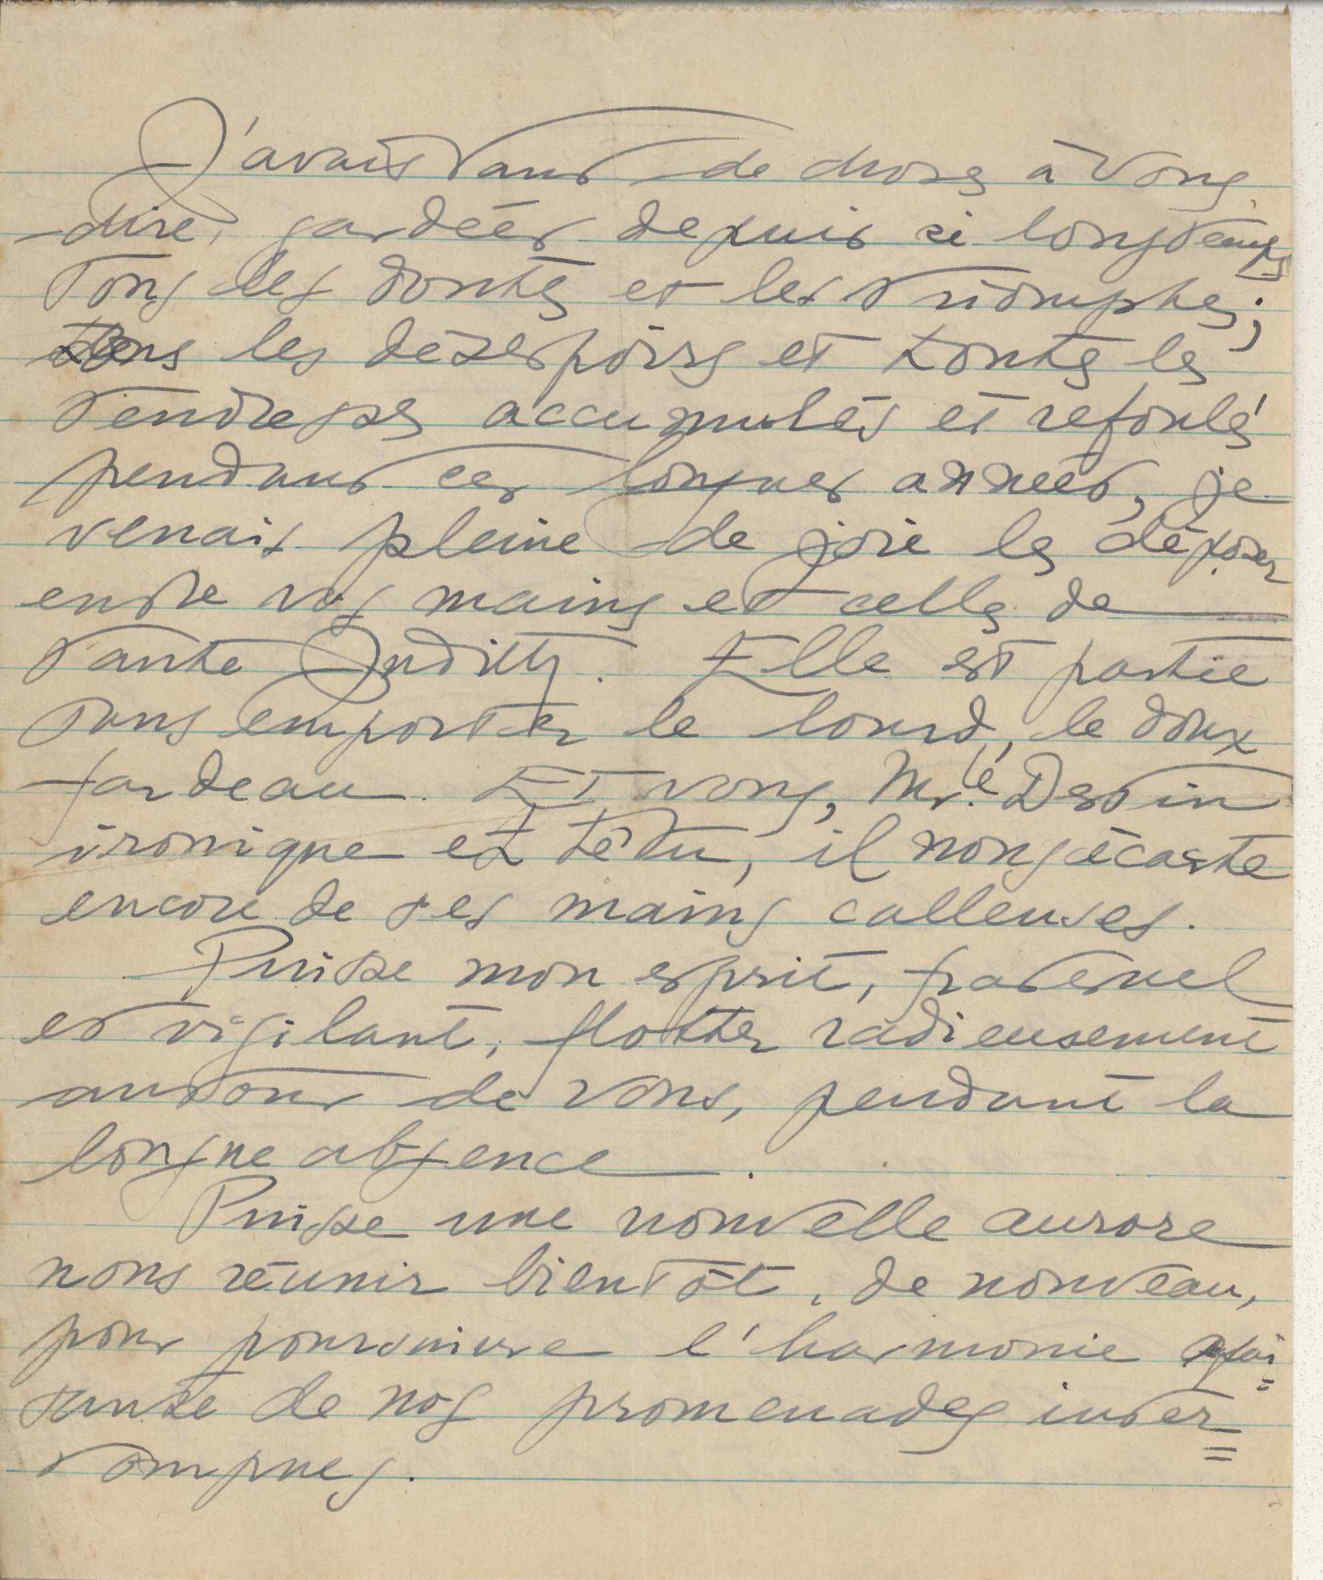 J'avais tant de choses à vous
dire, gardées depuis si longtemps
Tous les doutes et les triomphes;
tous les désespoirs et toutes les
tendresses accumulés et refoulés
pendant ces longues années, je
venais pleine de joie les déposer
entre vos mains et celles de
tante Judith. Elle est partie
sans emporter le lourd, le doux
fardeau. Et vous, Mr! le Destin
ironique et têtu, il nous écarte
encore de ses mains calleuses.
Puisse mon esprit, fraternel
et vigilant, flotter radieusement
autour de vous, pendant la
longue absence.
Puisse une nouvelle aurore
nous réunir bientôt, de nouveau,
pour poursuivre l'harmonie apai=
sante de nos promenades inter=
rompues.